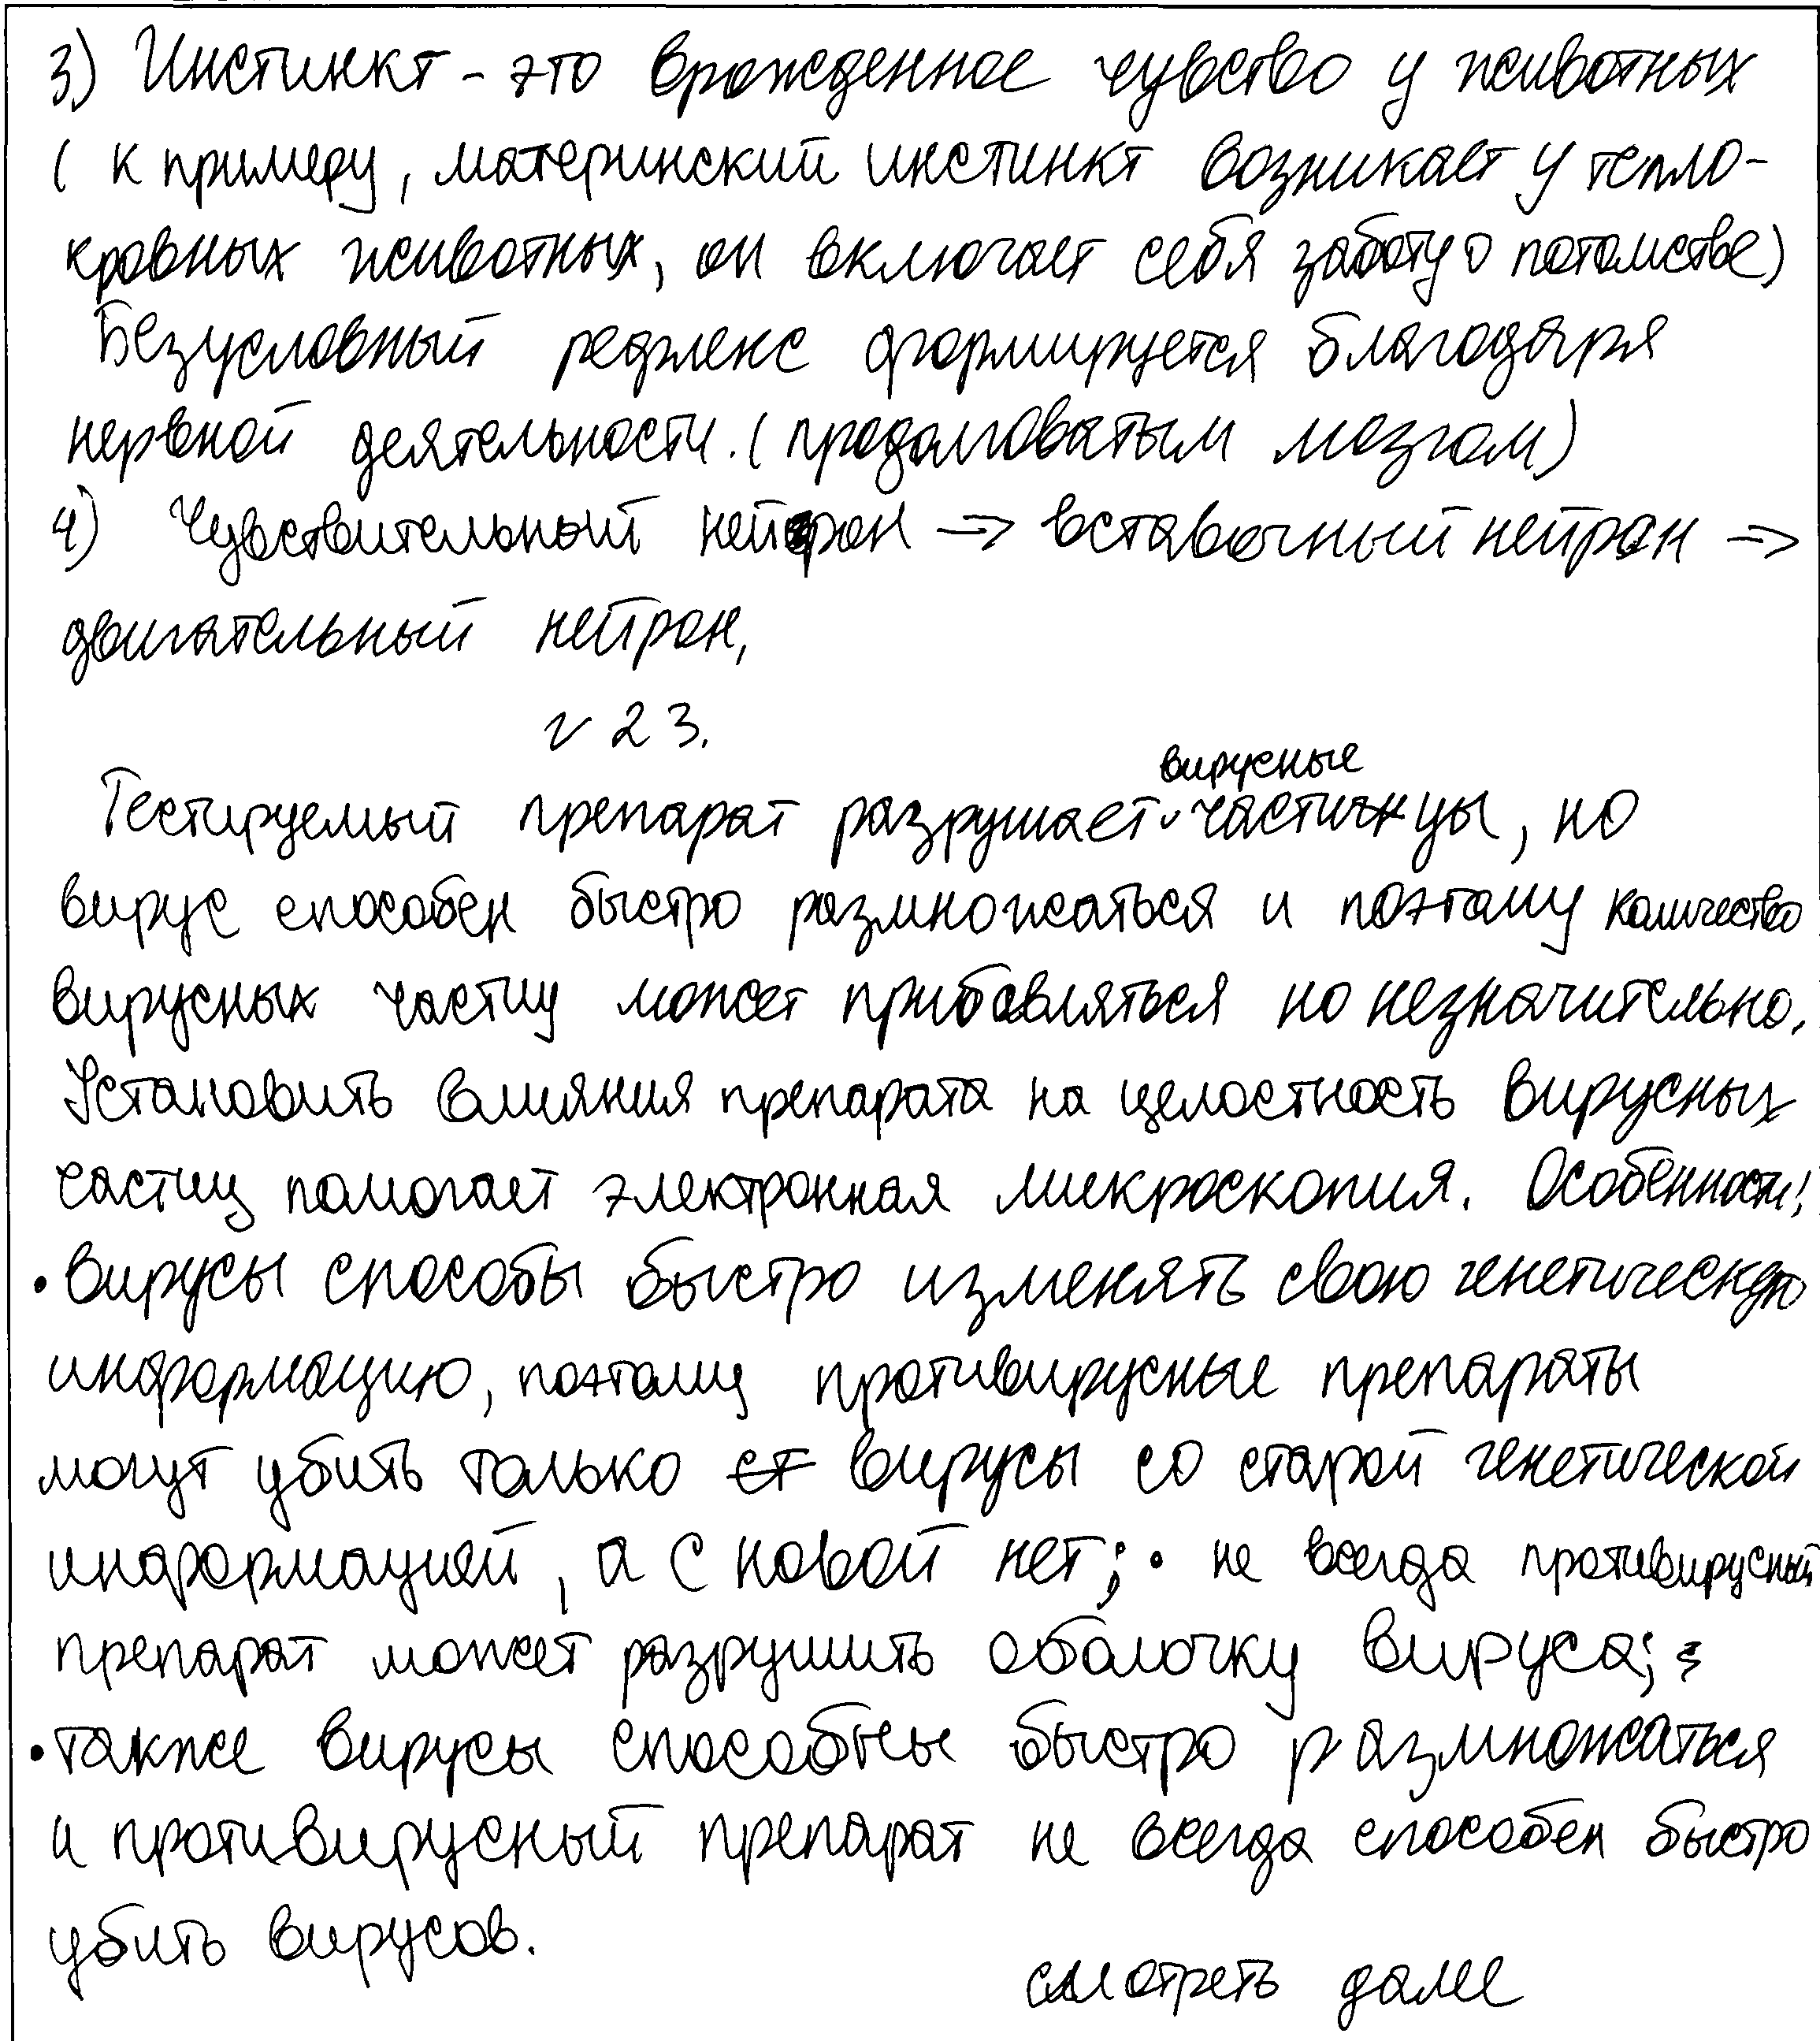 3) Инстинкт - это врожденное чувство у животных
( к примеру, материнский инстинкт возникает у тепло-
кровных животных, он включает себя заботу о потомстве)
Безусловный рефлекс формируется благодаря
нервной деятельности. (продолговатым мозгом)
4) Чувствительный нейрон → вставочный нейрон →
двигательный нейрон,
№ 23.
вирусные
Тестируемый препарат разрушает ᵛ частицы, но
вирус способен быстро размножаться и поэтому количество
вирусных частиц может прибавляться но незначительно.
Установить влияния препарата на целостность вирусных
частиц помогает электронная микроскопия. Особенности:
• Вирусы способы быстро изменять свою генетическую
информацию, поэтому противирусные препараты
могут убить только ст вирусы со старой генетической
информацией, а с новой нет; • не всегда противирусный
препарат может разрушить оболочку вируса;
• также вирусы способны быстро размножаться
и противирусный препарат не всегда способен быстро
убить вирусов.
смотреть далее